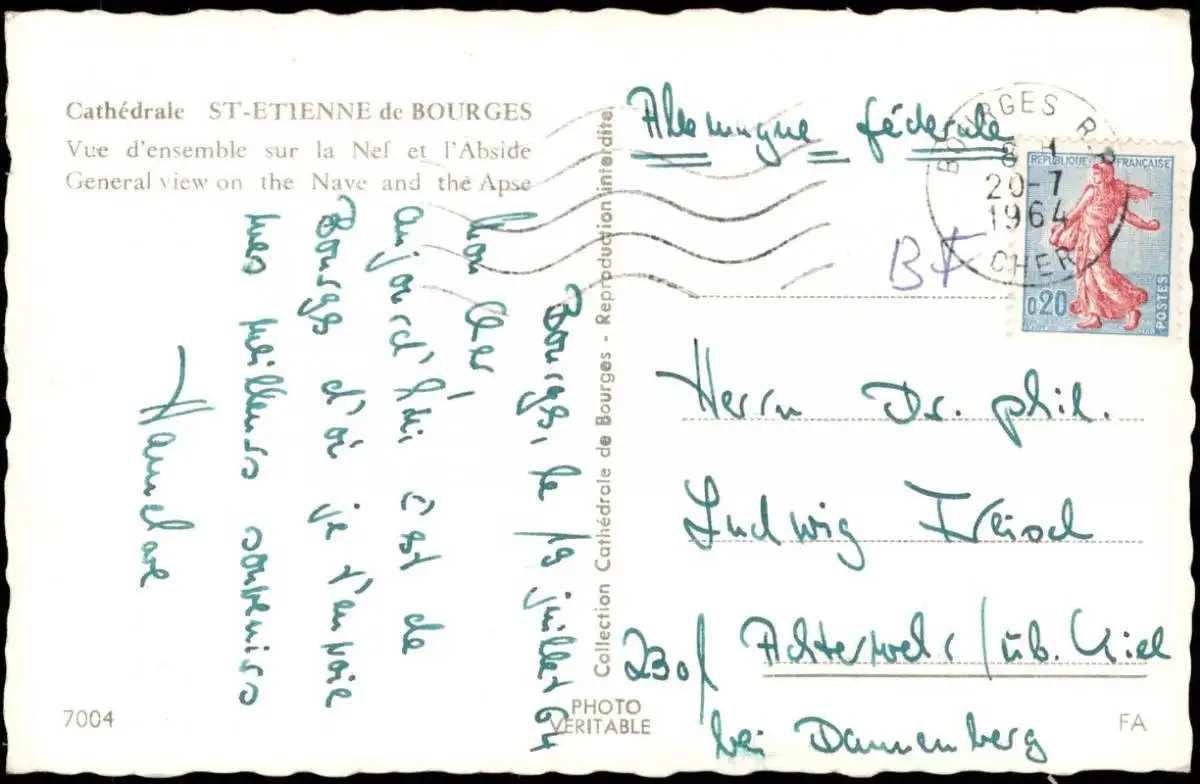 Cathédrale ST-ETIENNE de BOURGES
Vue d'ensemble sur la Nef et l'Abside
General view on the Nave and the Apse
Bourges, le 19 juillet 64
Mon cher,
aujourd'hui c'est de
Bourges d'où je t'envoie
mes meilleurs souvenirs
Hannelore
7004
Collection Cathédrale de Bourges - Reproduction interdite
PHOTO
VERITABLE
Allemagne fédérale
BOURGES R.P.
20-7
1964
CHER
REPUBLIQUE FRANÇAISE
0,20
POSTES
Herrn Dr. phil.
Ludwig
230/ /üb. Kiel
bei Dannenberg
FA